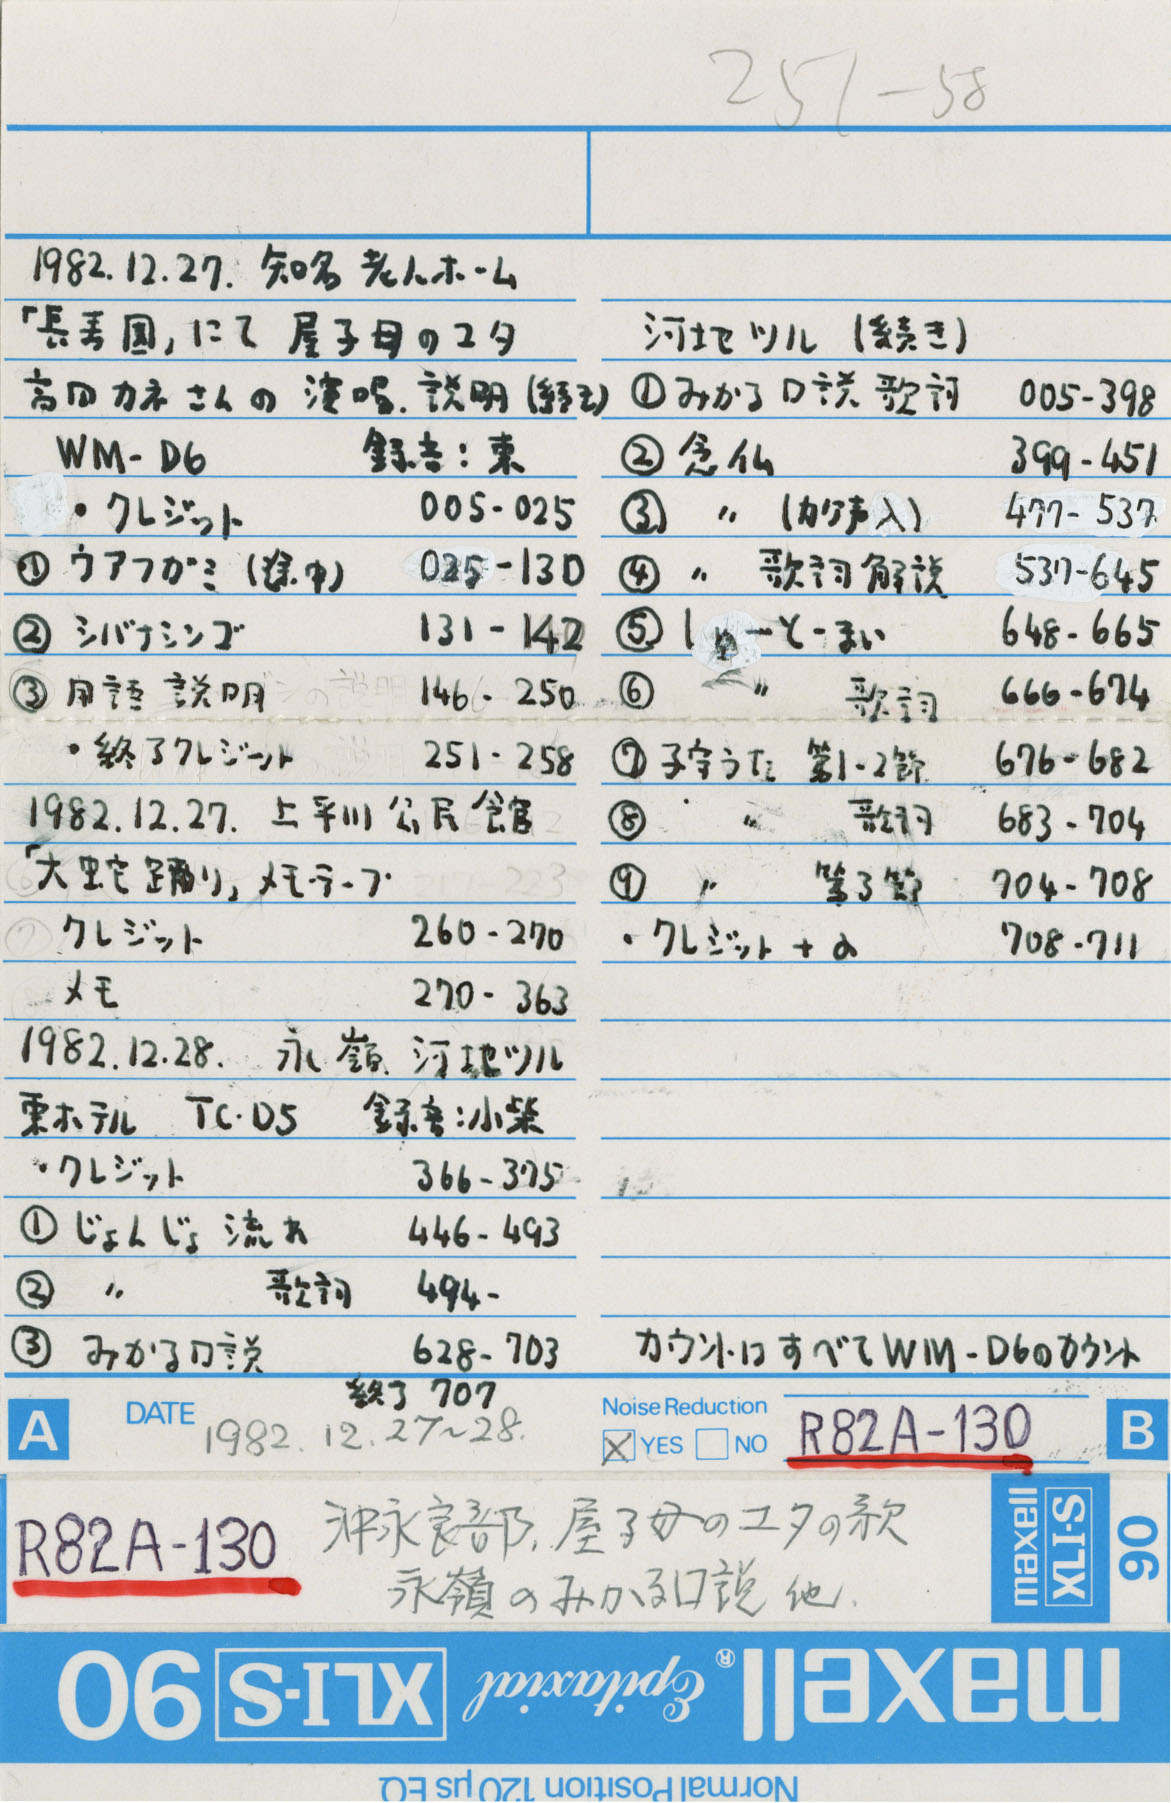 251-58
1982.12.27. 知名 老人ホーム
「長寿園」にて 屋子母のユタ
高田カネさんの 演唱、説明(続き)
WM-D6 録音:東
・クレジット 005-025
① ウアフガミ(途中) 025-130
② シバナシンゴ 131-142
③ 用語説明 146-250
・終了クレジット 251-258
1982.12.27. 上平川公民館
「大蛇踊り」メモ・テープ
クレジット 260-270
メモ 270-363
1982.12.28. 永嶺 河地ツル
東ホテル TC-D5 録音:小柴
・クレジット 366-375
① じょんじょ流れ 446-493
② 〃 歌詞 494-
③ みかる口説 628-703
終了 707
河地ツル(続き)
① みかる口説 歌詞 005-398
② 念仏 399-451
③ 〃 (カケ声入) 477-537
④ 〃 歌詞解説 537-645
⑤ しゅーとーまい 648-665
⑥ 〃 歌詞 666-674
⑦ 子守うた 第1-2節 676-682
⑧ 〃 歌詞 683-704
⑨ 〃 第3節 704-708
・クレジット+α 708-711
カウントはすべてWM-D6のカウント
A DATE 1982.12.27~28.
Noise Reduction
YES NO R82A-130 B
R82A-130
沖永良部、屋子母のユタの歌
永嶺のみかる口説 他.
maxell XLI-S 90
maxell® Epitaxial XLI-S 90
Normal Position 120μs EQ